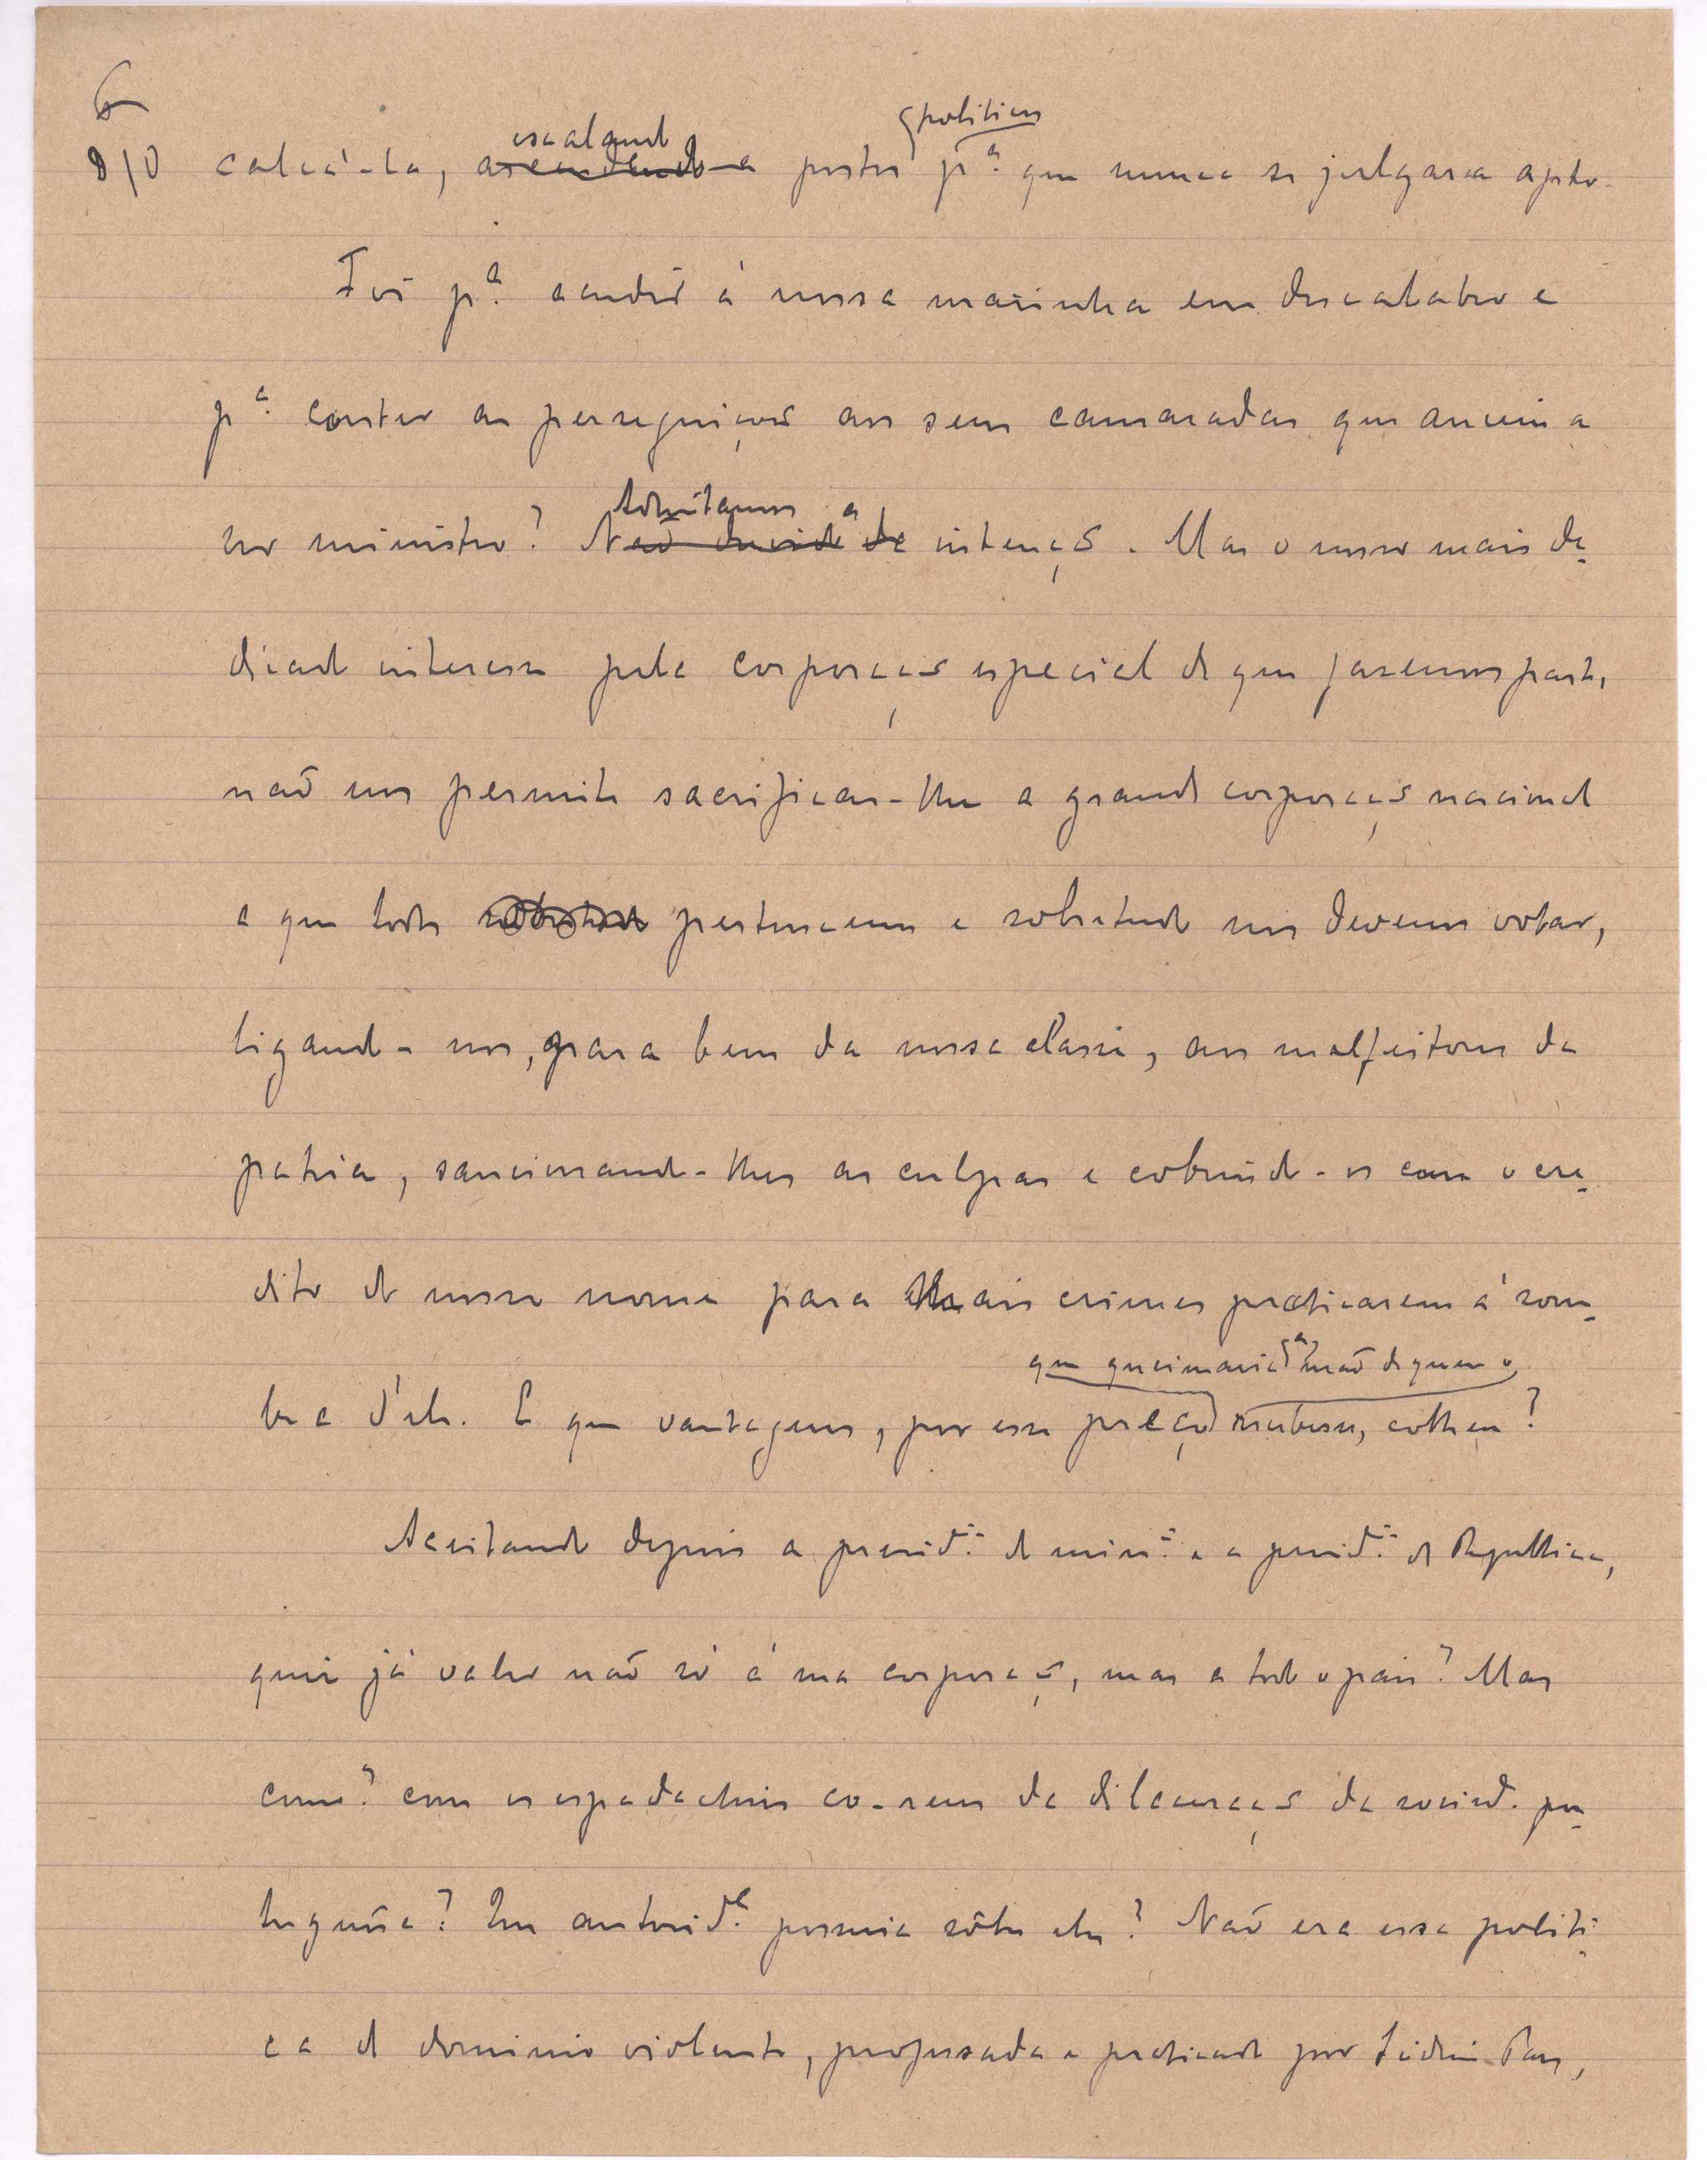 6
8/0 calcá-la, escalando ascendendo a postos pª. políticos que nunca se julgara apto.
Foi pª. acudir á nossa marinha em descalabro e
pª. conter as perseguições aos seus camaradas que ancein a
no ministro? Admitamos a Não duvido da intenção. Mas o nosso mais de-
dicado interesse pela corporação especial de que fazemos parte,
não nos permite sacrificar-lhe a grande corporação nacional
a que todos sobretudo pertencemos e sobretudo nos devemos votar,
ligando-nos, para bem da nossa classe, aos malfeitores da
patria, sancionando-lhes as culpas e cobrindo-os com o cre-
dito do nosso nome para mais crimes praticarem á som-
bra d'ele. E que vantagens, por esse preço que queimaria a mão de quem o recebesse, colheu?
Aceitando depois a presidª. do minº. e a presidª. da Republica,
quiz já valer não só á sua corporação, mas a todo o pais? Mas
como? com os espadachins co-reus da dilaceração da socied. por-
tuguêsa? Que autoridᵉ. possuia sôbre eles? Não era essa politi-
ca de dominio violento, professada e praticada por Sidonio Paes,